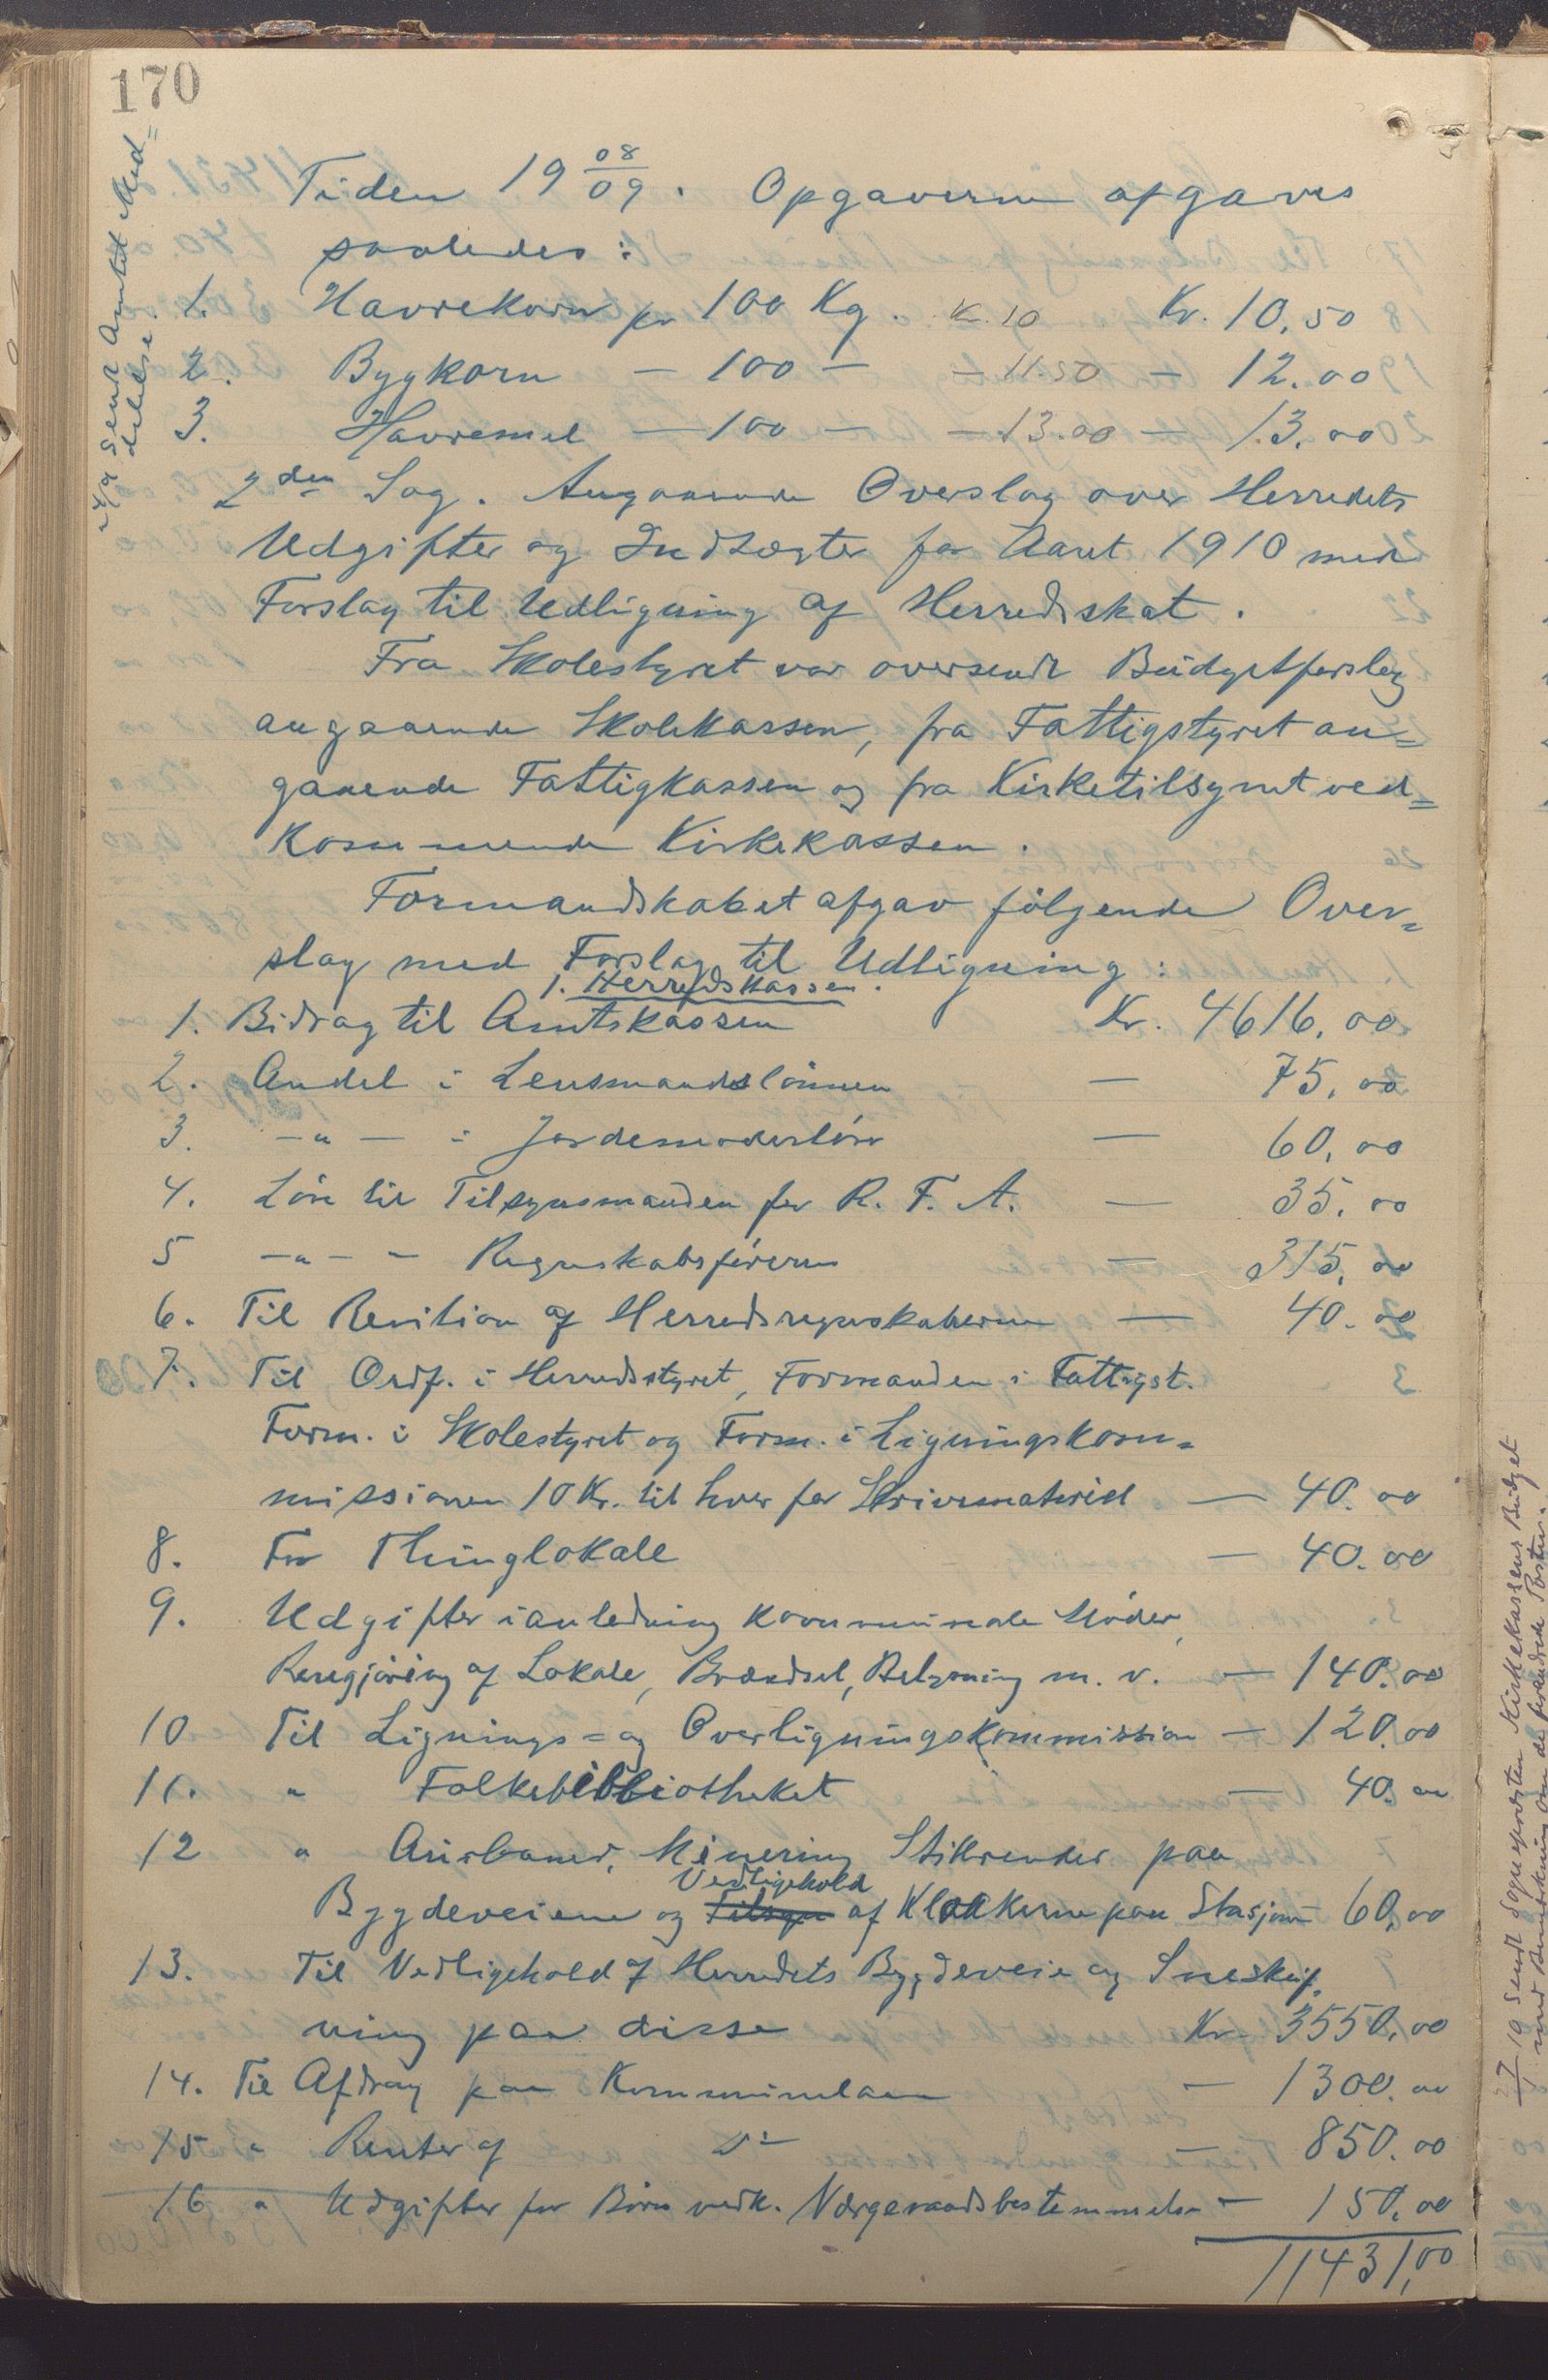 170
Tiden 19 08/09. Opgaverne afgaves
saaledes:
1. Havrekorn pr 100 Kg. Kr. 10 Kr. 10,50
2. Bygkorn — 100 — — 11.50 — 12.00
3. Havremel — 100 — — 13.00 — 13.00
2den Sag. Angaaende Overslag over Herredets
Udgifter og Indtægter for Aaret 1910 med
Forslag til Udligning af Herredsskat.
Fra Skolestyret var oversendt Budgetforslag
angaaende Skolekassen, fra Fattigstyret an=
gaaende Fattigkassen og fra Kirketilsynet ved=
kommende Kirkekassen.
Formandskabet afgav følgende Over=
slag med Forslag til Udligning:
1. Herredskassen.
1. Bidrag til Amtskassen Kr. 4616,00
2. Andel i Lensmandslønnen — 75,00
3. —„— i Jordemoderløn — 60,00
4. Løn til Tilsynsmanden for R. F. A. — 35,00
5 —„— - Regnskabsføreren — 315,00
6. Til Revision af Herredsregnskaberne — 40.00
7. Til Ordf. i Herredsstyret, Formanden i Fattigst.
Form. i Skolestyret og Form. i Ligningskom=
missionen 10 Kr. til hver for Skrivemateriel — 40.00
8. For Thinglokale — 40.00
9. Udgifter i anledning kommunale Møder,
Rengjøring af Lokale, Brændsel, Belysning m. v. — 140.00
10 Til Lignings= og Overligningskommission — 120.00
11. „ Folkebibliotheket — 40.00
12 „ Minering Stikrender paa
Bygdeveiene og Tilsyn Vedligehold af Kloakerne paa Stasjonen 60,00
13. Til Vedligehold af Herredets Bygdeveie og Sneskuf=
ning paa disse Kr. 3550,00
14. Til Afdrag paa Kommunelaan — 1300.00
15 „ Renter af Do — 850.00
16 „ Udgifter for Børn vedk. Værgeraadsbestemmelser — 150.00
11431,00
sendt Amtet Med=
delelse.
27/10 sendt Sognepræsten Kirkekassens Budget
med Bemærkning om de forandrede Poster.